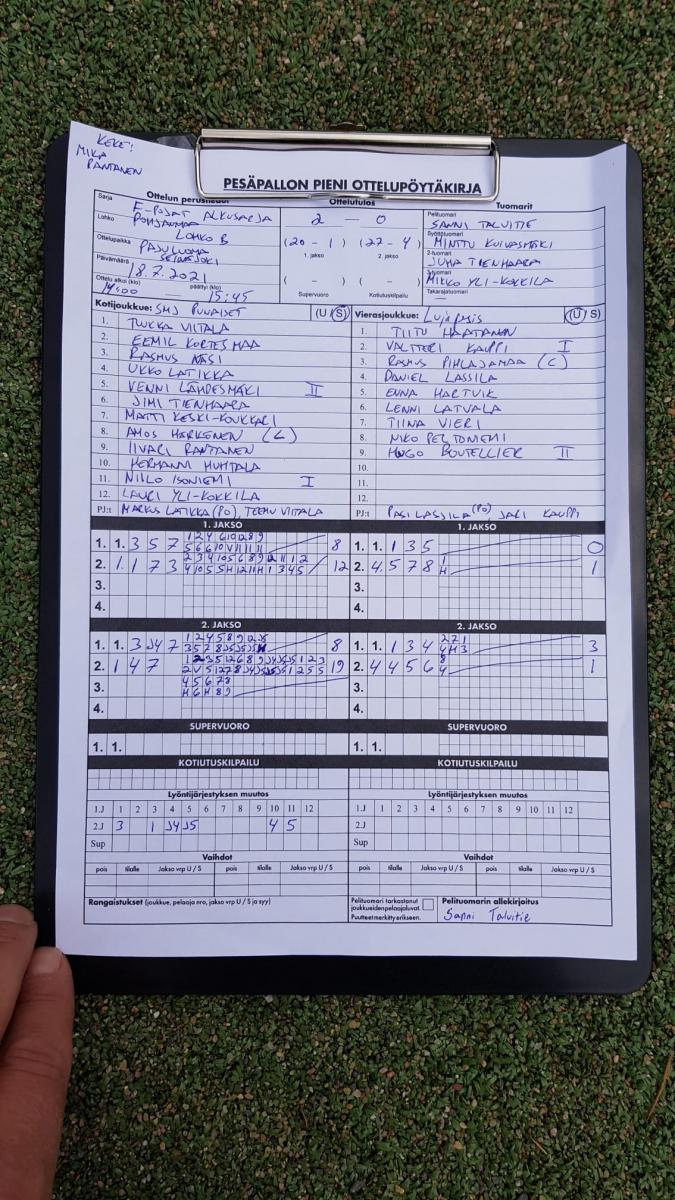 KEKE:
MIKA
RANTANEN
PESÄPALLON PIENI OTTELUPÖYTÄKIRJA
Ottelun perustiedot
Ottelutulos
Tuomarit
Sarja E-POJAT ALKUSARJA
Lohko POHJANMAA LOHKO B
Ottelupaikka PAJULUOMA SEINÄJOKI
Päivämäärä 18.7.2021
Ottelu alkoi (klo) 14:00 päättyi (klo) 15:45
2 — 0
(20 - 1) (27 - 4)
1. jakso 2. jakso
( - ) ( - )
Supervuoro Kotiutuskilpailu
Pelituomari SANNI TALVITIE
Syöttötuomari MINTTU KUIVASMÄKI
2-tuomari JUHA TIENHAARA
3-tuomari MIKKO YLI-KOKKILA
Takarajatuomari
Kotijoukkue: SMJ PUNAISET (U/S)
1. TUKKA VIITALA
2. EEMIL KORTESMAA
3. RASMUS NÄSI
4. UKKO LATIKKA
5. VENNI LÄHDESMÄKI II
6. JIMI TIENHAARA
7. MATTI KESKI-KOUKKARI
8. AMOS HARKÖNEN
9. IIVARI RANTANEN
10. HERMANNI HUHTALA
11. NIILO ISONIEMI I
12. LAURI YLI-KOKKILA
PJ:t MARKUS LATIKKA (PO), TEEMU VIITALA
Vierasjoukkue: Lujapesis (U/S)
1. TIITU HAATANEN
2. VALTTERI KAUPPI I
3. RASMUS PIHLAJAMAA (C)
4. DANIEL LASSILA
5. ENNA HARTVIK
6. LENNI LATVALA
7. TIINA VIERI
8. NIKO PELTONIEMI
9. HUGO BOUTELLIER II
10.
11.
12.
PJ:t PASI LASSILA (PO) JARI KAUPPI
1. JAKSO
1. 1. 3 5 7 8
2. 1. 1 7 3 12
3.
4.
1. JAKSO
1. 1. 1 3 5 0
2. 4. 5 7 8 1
3.
4.
2. JAKSO
1. 1. 3 J4 7 8
2. 1 4 7 19
3.
4 5 6 7 8
4.
2. JAKSO
1. 1. 1 3 4 3
2. 4 4 5 6 1
3.
4.
SUPERVUORO
1. 1.
SUPERVUORO
1. 1.
KOTIUTUSKILPAILU
KOTIUTUSKILPAILU
Lyöntijärjestyksen muutos
1.J 1 2 3 4 5 6 7 8 9 10 11 12
2.J 3 1 J4 J5 4 5
Sup
Lyöntijärjestyksen muutos
1.J 1 2 3 4 5 6 7 8 9 10 11 12
2.J
Sup
Vaihdot
pois tilalle Jakso vrp U / S pois tilalle Jakso vrp U / S
Vaihdot
pois tilalle Jakso vrp U / S pois tilalle Jakso vrp U / S
Rangaistukset (joukkue, pelaaja nro, jakso vrp U / S ja syy)
Pelituomari tarkastanut
joukkueiden pelaajaluvat.
Puutteet merkitty erikseen.
Pelituomarin allekirjoitus
Sanni Talvitie